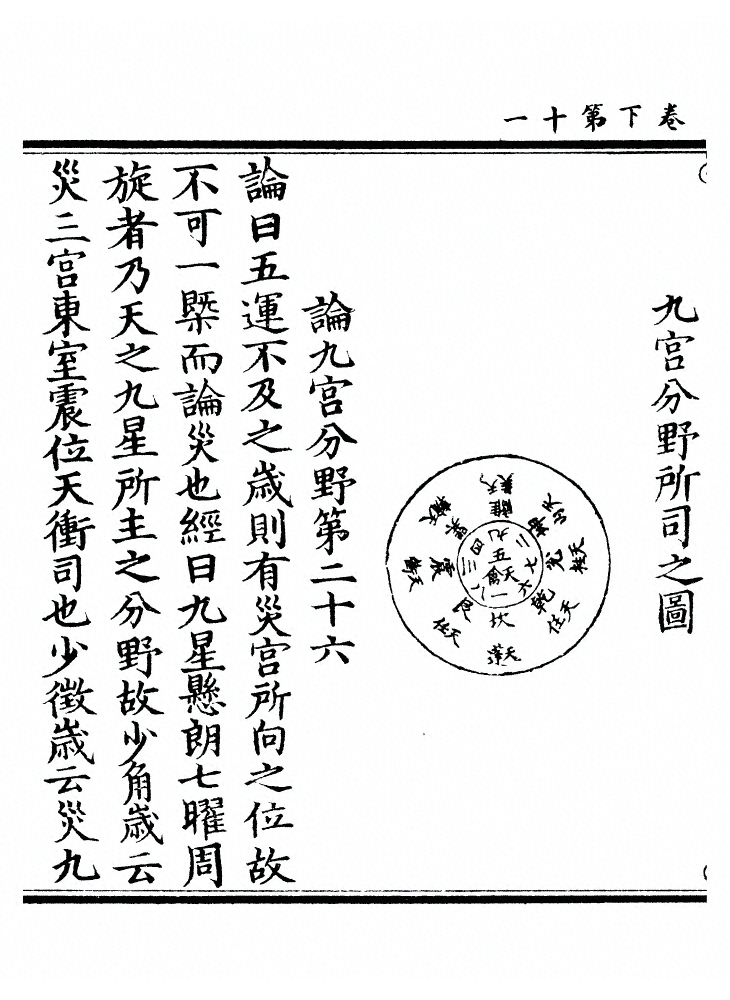 卷下第十一
九宫分野所司之圖
五
天禽
一
坎
天蓬
八
艮
天任
三
震
四
巽
九
離
天英
二
七
兌
天柱
六
乾
論九宫分野第二十六
論曰五運不及之歲則有災宫所向之位故
不可一槩而論災也經曰九星懸朗七曜周
旋者乃天之九星所主之分野故少角歲云
災三宫東室震位天衝司也少徵歲云災九